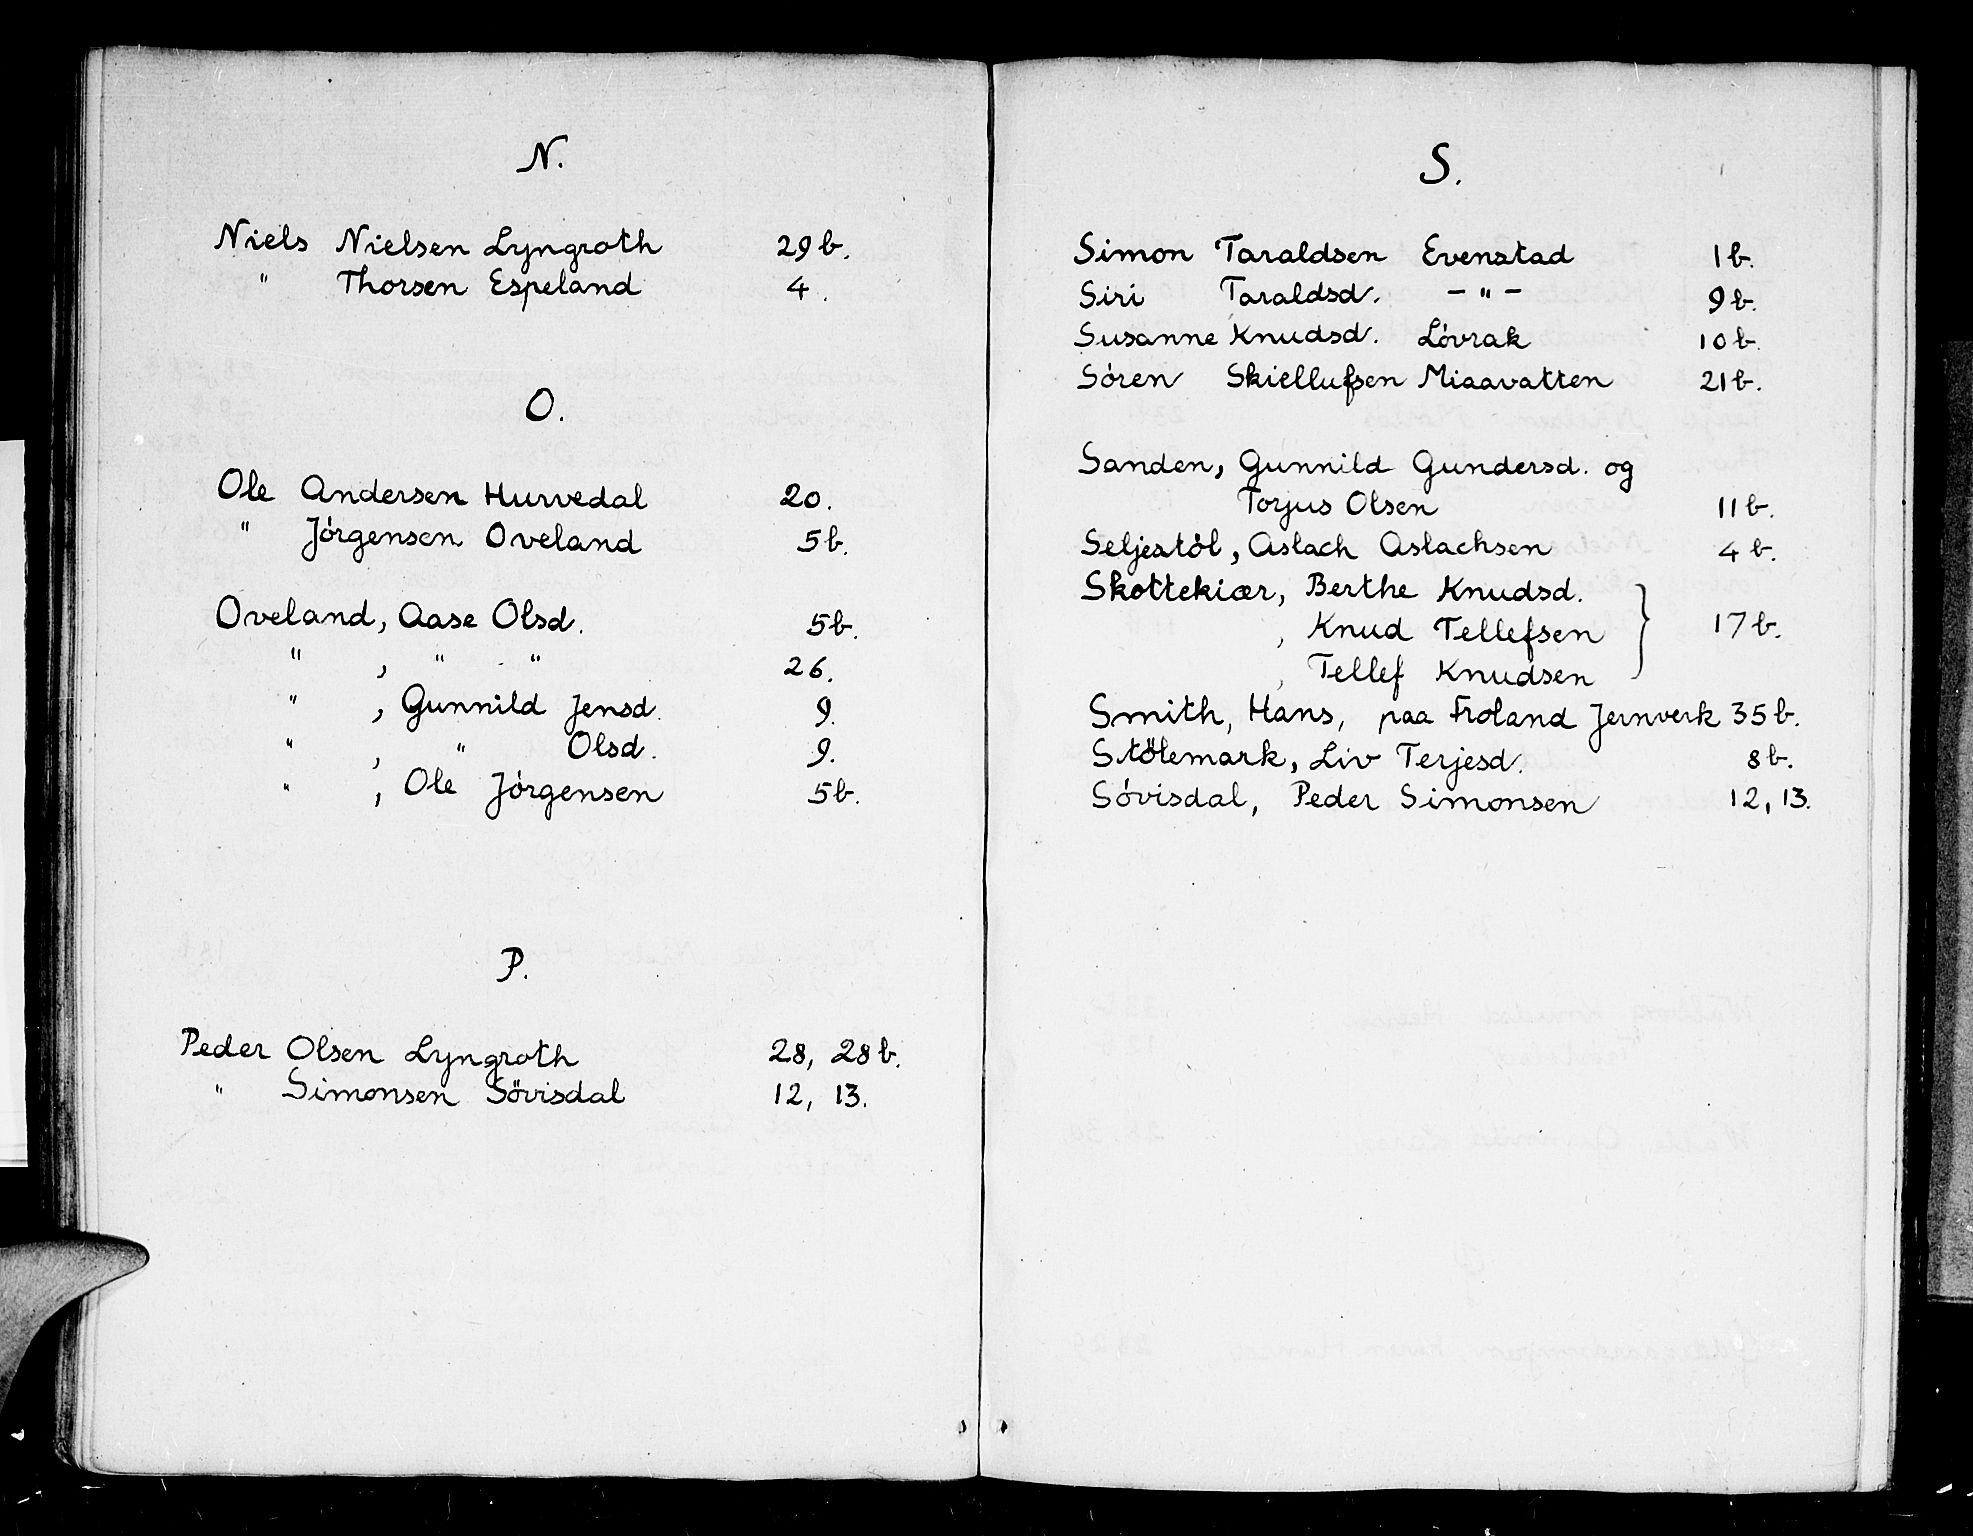 N.
Niels Nielsen Lyngroth 29b.
" Thorsen Espeland 4.
O.
Ole Andersen Hurvedal 20.
" Jórgensen Oveland 5b.
Oveland, Aase Olsd. 5b.
" , " " 26.
" , Gunnild Jensd. 9.
" , " Olsd. 9.
" , Ole Jórgensen 5b.
P.
Peder Olsen Lyngroth 28, 28b.
" Simonsen Sövisdal 12, 13.
S.
Simon Taraldsen Evenstad 1b.
Siri Taraldsd. - " - 9b.
Susanne Knudsd. Lóvrak 10b.
Sóren Skiellufsen Miaavatten 21b.
Sanden, Gunnild Gundersd. og
Torjus Olsen 11b.
Seljestól, Aslach Aslachsen 4b.
Skottekiær, Berthe Knudsd.
, Knud Tellefsen } 17b.
, Tellef Knudsen
Smith, Hans, paa Froland Jernverk 35b.
Stölemark, Liv Terjesd. 8b.
Sóvisdal, Peder Simonsen 12, 13.